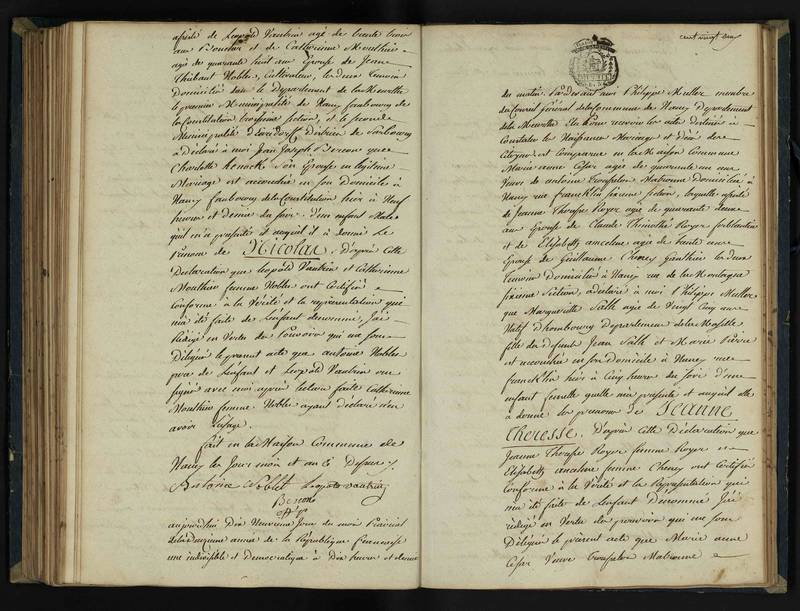 assisté de Léopold Vautrin agé de trente trois
ans Boucher et de Catherine Mouthier
agée de quarante huit ans Epouse de Jean
Thibaut Nobler, Cultivateur, les deux temoins
Domiciliés dans le Departement de la Meurthe
le premier Municipalité de Nancy faubourg de
la Constitution troisieme section, et le second
Municipalité District de
a Déclaré à moi Jean Joseph que
Charlotte son Epouse en légitime
Mariage est accouchée en son Domicile à
Nancy faubourg de la Constitution hier à Neuf
heures et demie du soir. D'un enfant Male
qu'il m'a présenté et auquel il a donné le
prénom de Nicolas. D'après cette
Déclaration que Léopold Vautrin et Catherine
Mouthier femme Nobler ont Certifié
conforme à la Vérité et la représentation qui
m'a été faite de L'enfant denommé, J'ai
Rédigé en Vertu des Pouvoirs qui me sont
Délégués le present acte que antoine Nobler
père de L'enfant et Léopold Vautrin ont
signé avec moi après lecture faite Catherine
Mouthier femme Nobler ayant déclaré n'en
avoir L'usage.
fait en la Maison Commune de
Nancy les Jour mois et an ci Dessus.
Noblet Leopold Vautrin
aujourdhui Dix Neuvieme Jour du mois Prairial
de la Deuxieme année de la République francaise
une indivisible et Democratique à Dix heures et demie
cent vingt
du matin. Pardevant moi Philippe Muller membre
du Conseil Général de la Commune de Nancy Departement
de la Meurthe Elu Pour recevoir les actes Destinés à
Constater les Naissances Mariages et Décès des
Citoyens est Comparue en la Maison Commune
Marie anne César agée de quarante un ans
Veuve de antoine Matronne Domiciliée à
Nancy rue francklin sixieme section, laquelle assistée
de Jeanne Therese Royer agée de quarante deux
ans Epouse de Claude Thimothé Royer ferblantier
et de Elizabeth anceline agée de trente ans
Epouse de Guillaume Cheney les deux
Temoins Domiciliés à Nancy rue de la Montagne
sixieme section, a déclaré à moi Philippe Muller
que Margueritte Salh agée de Vingt Cinq ans
Native D'hombourg Departement de la Moselle
fille des Defunts Jean Salh et Marie Pierre
est accouchée en son Domicile à Nancy rue
francklin hier à Cinq heures du soir d'un
enfant femelle quelle m'a presenté et auquel elle
a donné les prenoms de Jeanne
Theresse. D'après cette Déclaration que
Jeanne Therese Royer femme Royer et
Elizabeth anceline femme Cheney ont Certifié
Conforme à la Vérité et la Représentation qui
m'a été faite de L'enfant Denommé J'ai
redigé en Vertu des pouvoirs qui me sont
Délégués le présent acte que Marie anne
César Veuve Matronne